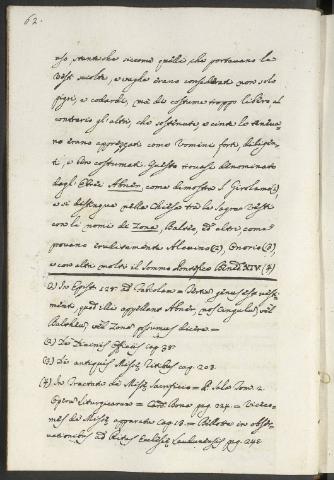 62.
uso, stante che siccome quelli che portavano la
Vesti sciolte, e vaghe erano considerati non solo
pigri, e codardi, mà di costume troppo libero, al
contrario gli altri, che sostenute, e cinte le teneva-
no erano apprezzati come Uomini forti, diligen-
ti, e ben costumati. Questa trovasi denominata
dagli Ebrei Abnèr, come dimostra S. Girolamo (1)
e si distingue nella Chiesa trà le Sagre Vesti
con li nomi di Zona, Balteo, ed altri come
provano eruditamente Alcuino (2), Onorio (3),
e con altri molti il sommo Pontefice Bened. XIV. (4)
(1) In Epist. 128. ad Fabiolam = Tertiũ genus est vesti-
mẽti, quod illi appellant Abnèr, nos Cingulũ, vèl
Baltheũ, vèl Zonã possumus dicere =
(2) De Divinis Officiis cap. 38.
(3) De antiquis Missę Ritibus cap. 203.
(4) In Tractatu de Missę Sacrificio = Tom. 2.
Operũ Liturgicarum = Card. Bona pag. 224. =
de Missę apparatu Cap. 18. = in obser-
vationibus ad Ritus Ecclesię Laudunensis pag. 248.